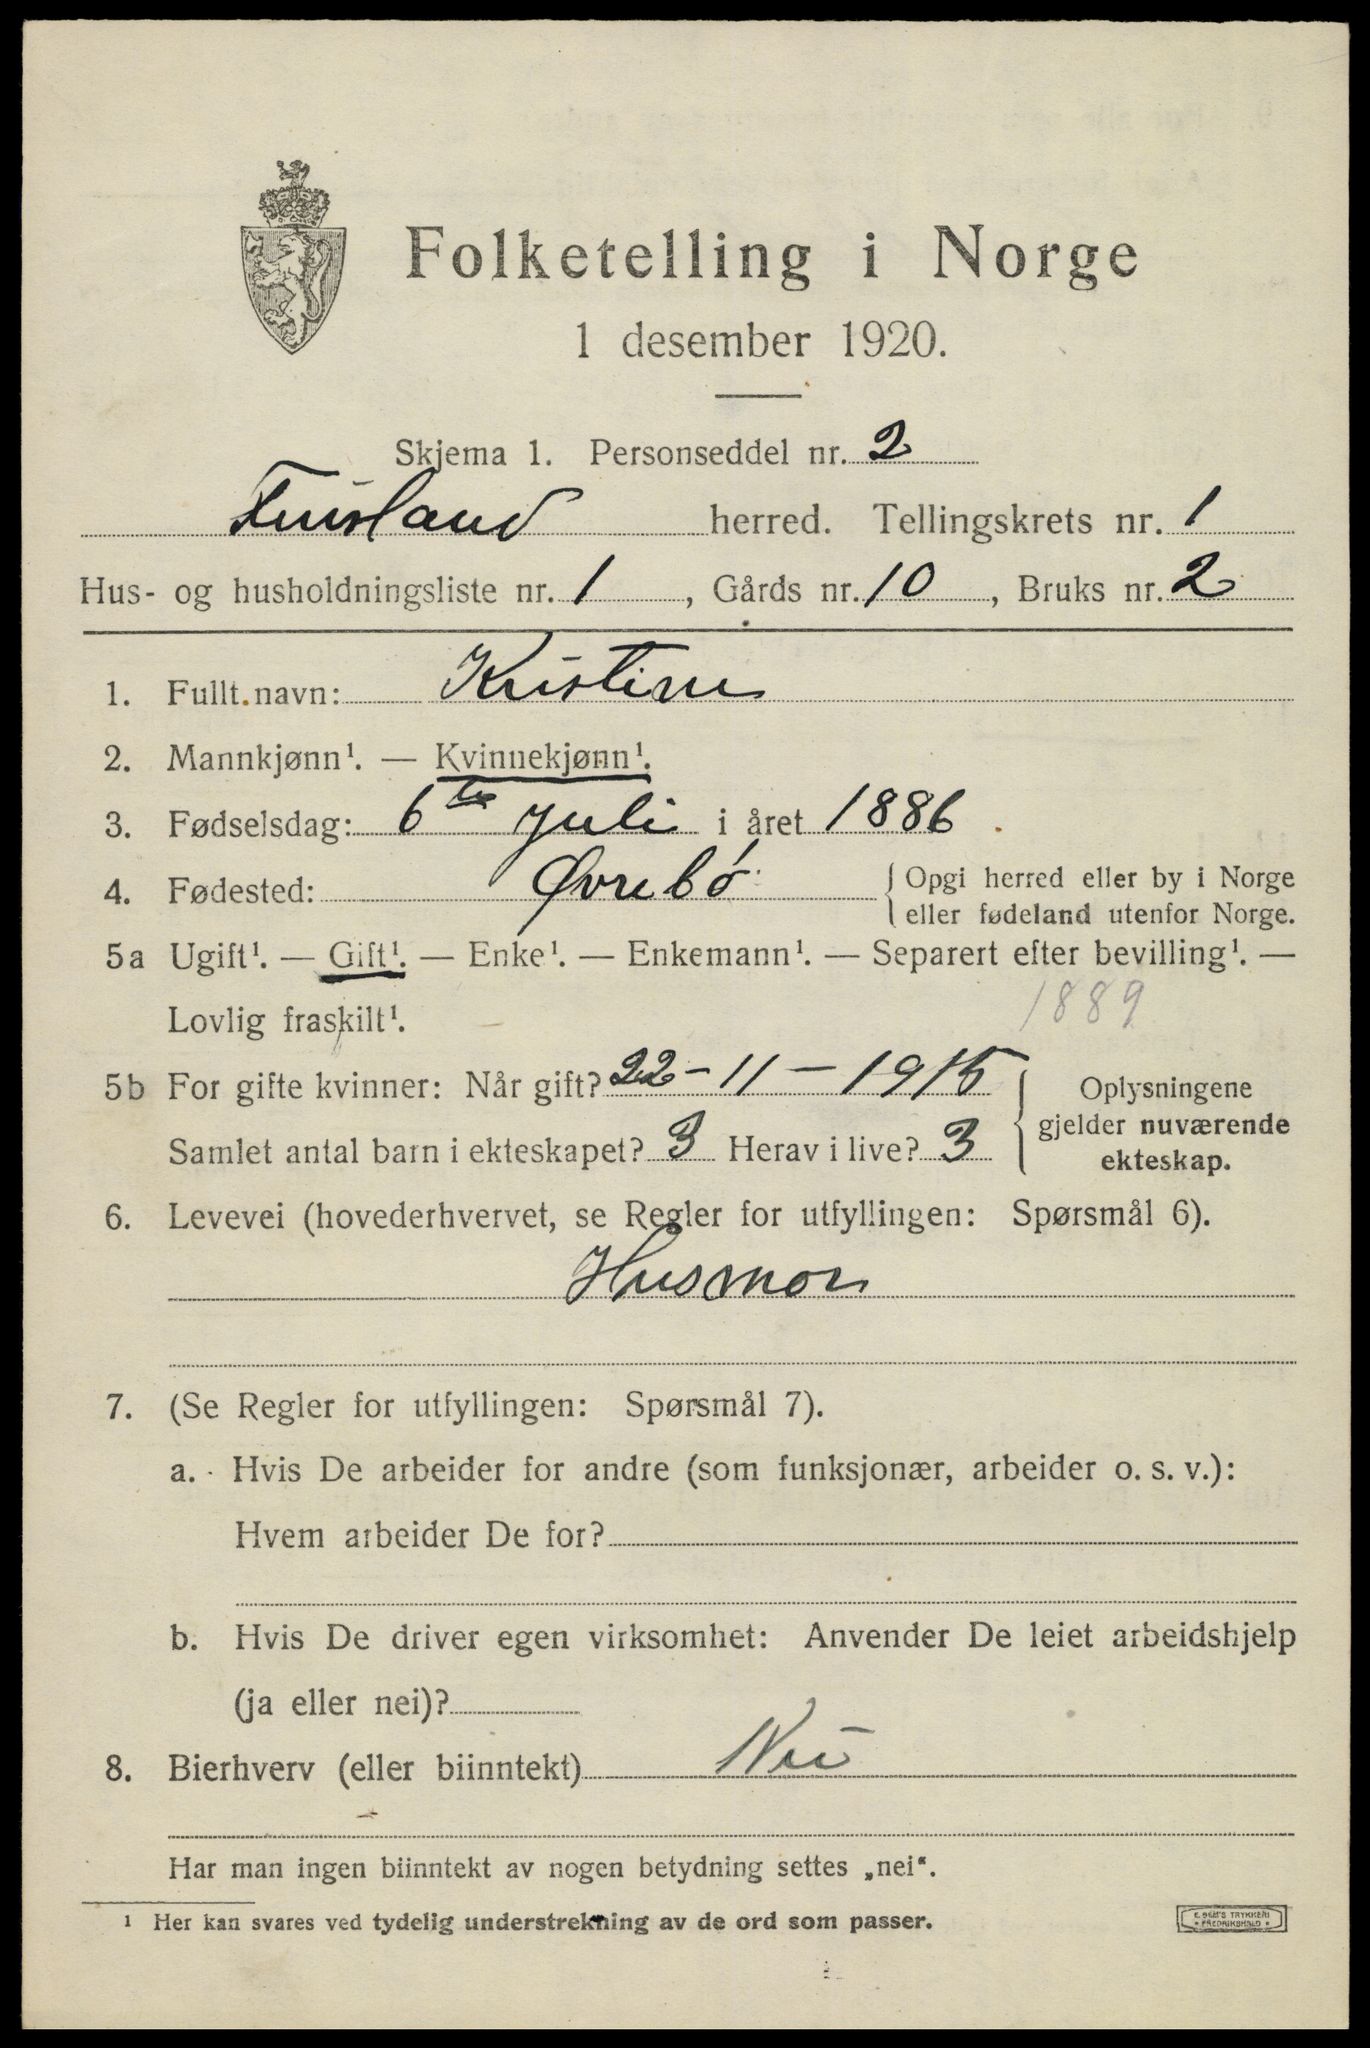 Folketelling i Norge
1 desember 1920.
Skjema 1. Personseddel nr. 2
Finsland herred. Tellingskrets nr. 1
Hus- og husholdningsliste nr. 1, Gårds nr. 10, Bruks nr. 2
1. Fullt navn: Kristine
2. Mannkjønn¹. — Kvinnekjønn¹.
3. Fødselsdag: 6te Juli i året 1886.
4. Fødested: Øvrebø { Opgi herred eller by i Norge
eller fødeland utenfor Norge.
5a Ugift¹. — Gift¹. — Enke¹. — Enkemann¹. — Separert efter bevilling¹. —
Lovlig fraskilt¹. 1889
5b For gifte kvinner: Når gift? 22-11-1915 { Oplysningene
gjelder nuværende
Samlet antal barn i ekteskapet? 3 Herav i live? 3
ekteskap.
6. Levevei (hovederhvervet, se Regler for utfyllingen: Spørsmål 6).
Husmor
7. (Se Regler for utfyllingen: Spørsmål 7).
a. Hvis De arbeider for andre (som funksjonær, arbeider o. s. v.):
Hvem arbeider De for?
b. Hvis De driver egen virksomhet: Anvender De leiet arbeidshjelp
(ja eller nei)?
8. Bierhverv (eller biinntekt) Nei
Har man ingen biinntekt av nogen betydning settes „nei“.
¹ Her kan svares ved tydelig understrekning av de ord som passer.
E. SEM'S TRYKKERI
FREDRIKSHALD